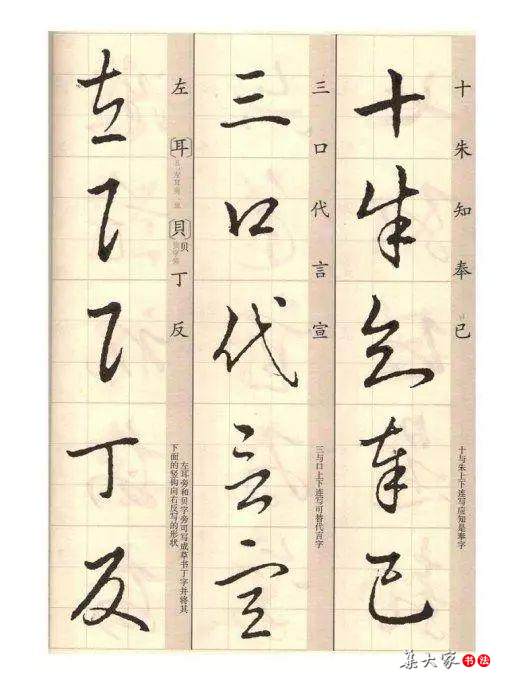 十朱知奉已
十与朱上下连写应知是奉字
十朱知奉已
三口代言宣
三与口上下连写可替代言字
三口代言宣
左[耳][貝]贝丁反
左耳旁和贝字旁可写成草书丁字并将其
下面的竖钩向右反写的形状
左耳貝丁反
集大家书法